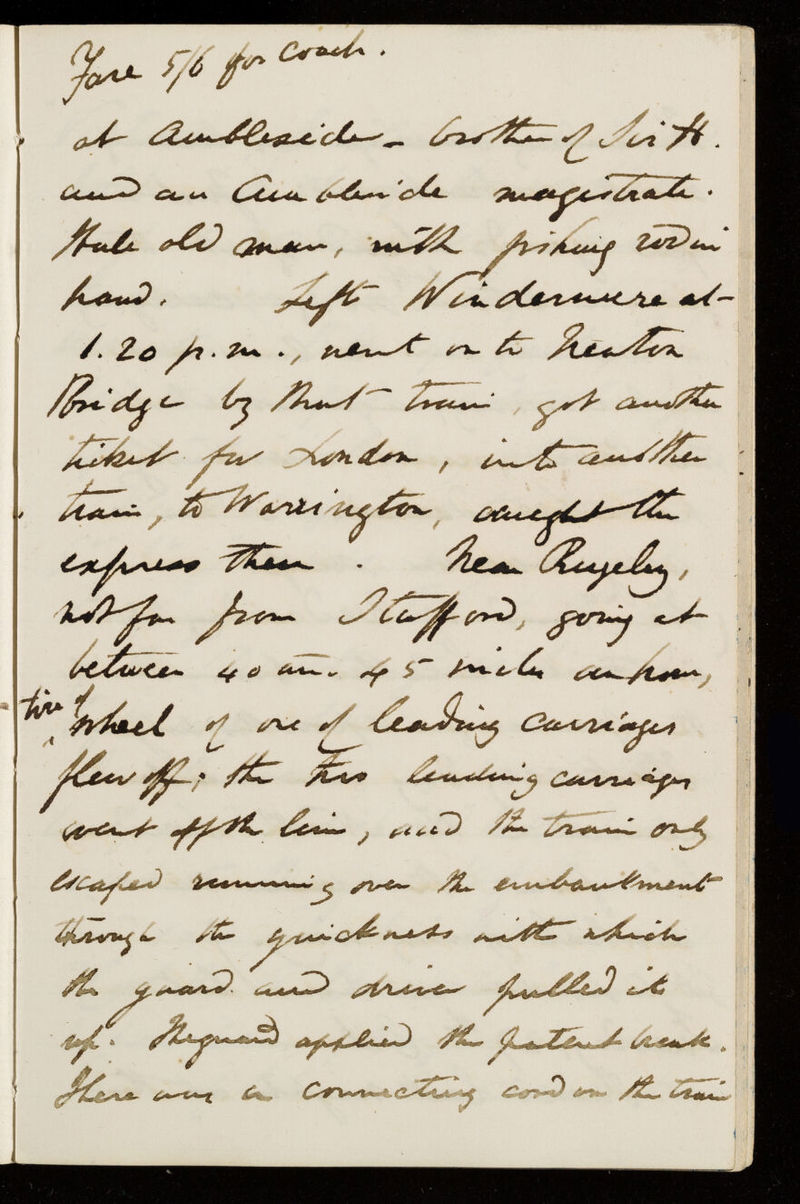 Fare 5/6 for coach.
at Ambleside - brother of Sir H.
and an Ambleside magistrate.
Hale old man, with fishing rod in
hand. Left Windermere at
1.20 p.m., went on to Newton
Bridge by that train, got another
ticket for London, into another
train, to Warrington, caught the
express there. Near Rugeley,
not far from Stafford, going at
between 40 and 45 miles an hour,
tire of
wheel of one of leading carriages
flew off; the two leading carriages
went off the line, and the train only
escaped running over the embankment
through the quickness with which
the guard and driver pulled it
up. The guard applied the patent break.
There was a connecting cord on the train